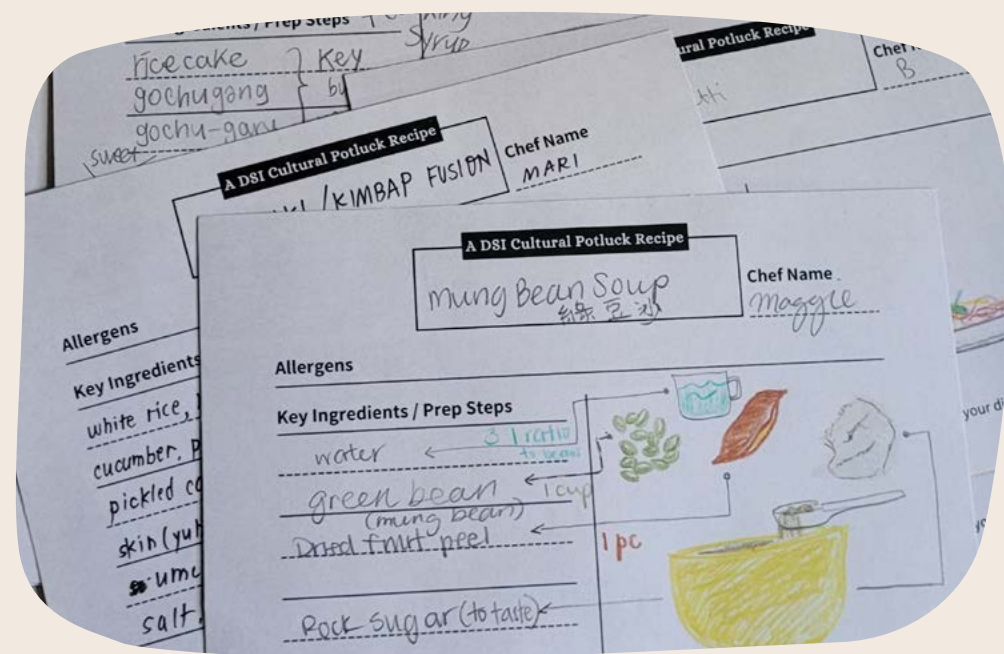 / Prep Steps
Syrup
rice cake
Key
gochugang
by
gochu-garu
sweet
ural Potluck Recipe
Chef
B
A DSI Cultural Potluck Recipe
/KIMBAP FUSION
Chef Name
MARI
Allergens
Key Ingredients
white rice,
cucumber, P
pickled
skin (
ume
salt
your
A DSI Cultural Potluck Recipe
Mung Bean Soup
綠豆沙
Chef Name
Maggie
Allergens
Key Ingredients / Prep Steps
water
3 1 ratio
to beans
green bean
1 cup
(mung bean)
Dried fruit peel
1 pc
Rock Sugar (to taste)